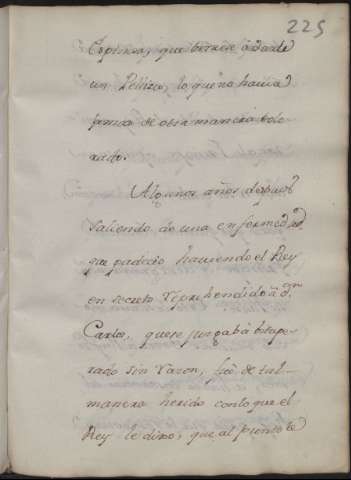 225
Espinosa, que biniese a darle
un Pellizco, lo que no havia
jamas de otra manera tole-
rado.
Algunos años despues
saliendo de una enfermedad,
que padecio haviendo el Rey
en secreto reprehendido â dn
Carlos, que se juzgaba
rado sin razon, fue de tal
manera herido con lo que el
Rey le dixo, que al punto le